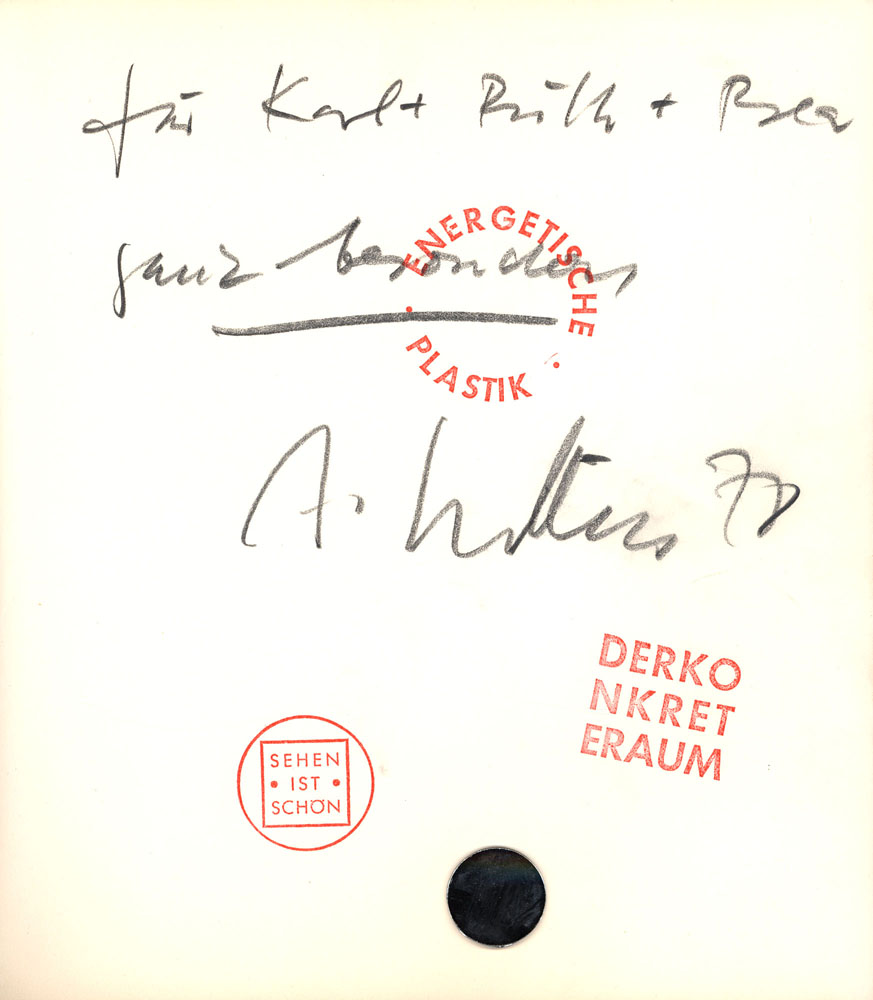 für Karl + Ruth + Bea
ganz besonders
ENERGETISCHE
· PLASTIK ·
A. Luther 78
DERKO
NKRET
ERAUM
SEHEN
• IST •
SCHÖN